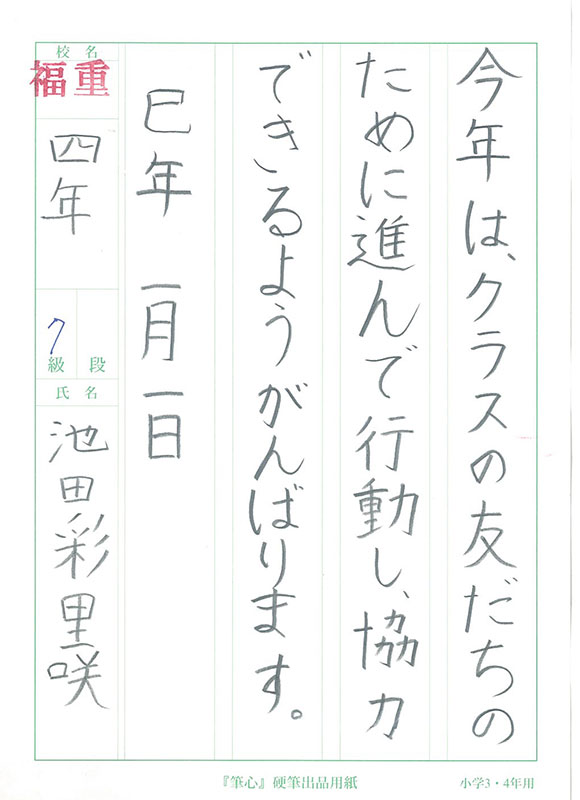 今年は、クラスの友だちの
ために進んで行動し、協力
できるようがんばります。
巳年 一月一日
校名
福重
四年
7
級 段
氏名
池田彩里咲
『筆心』硬筆出品用紙
小学3・4年用